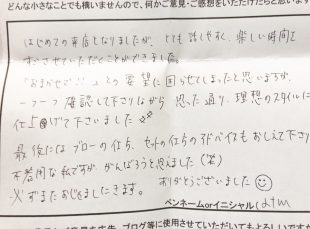 どんな小さなことでも構いませんので、何かご意見・ご感想をいただけたらと思います
はじめての来店となりましたが、とても話しやすく、楽しい時間を
すごさせていただくことができました。
「おまかせで!!」との要望に困らせてしまったと思いますが、
一つ一つ確認して下さりながら 思った通り、理想のスタイルに
仕上げて下さいました
最後にはブローの仕方、セットの仕方のアドバイスもおしえて下さり
不器用な私ですが、がんばろうと思えました(笑)
必ずまたおじゃましにきます。 ありがとうございました
ペンネームorイニシャル(
ブログ等に使用させていただいてもよろしいですか